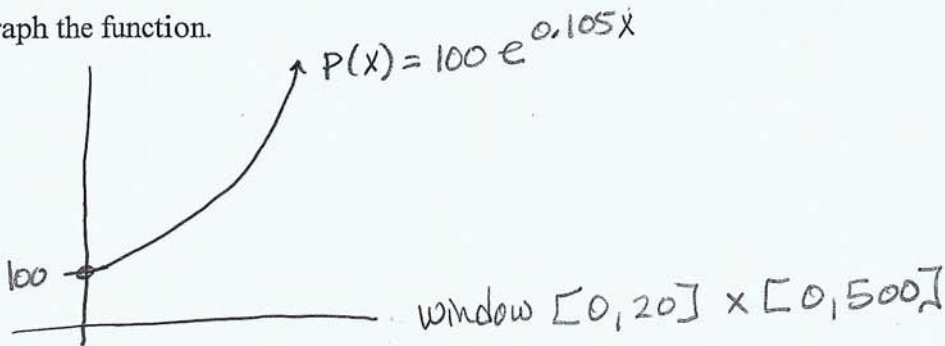 raph the function.
P(x) = 100 e^0.105x
100
window [0,20] x [0,500]